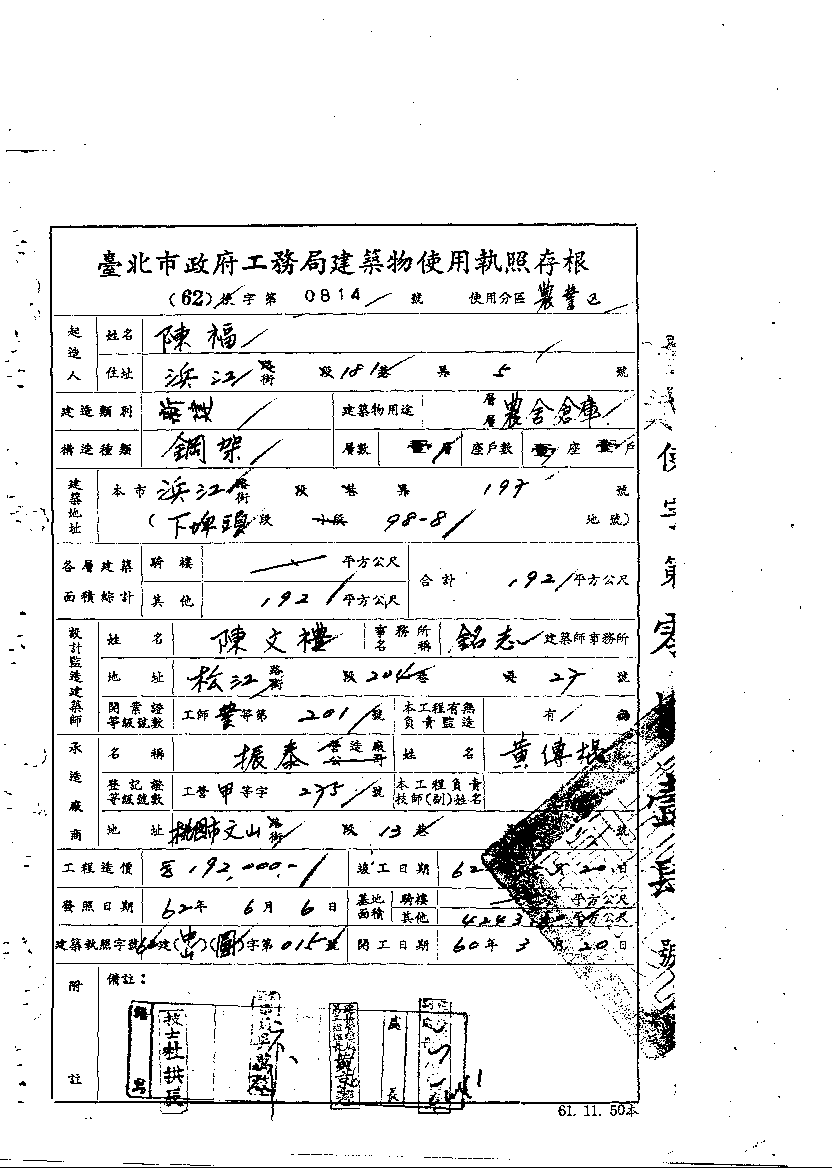 臺北市政府工務局建築物使用執照存根
(62)使字第0814號 使用分區 農業區
起造人 姓名 陳福
住址 浜江路街 段181巷 弄5號
建造類別 建築物用途 層層 農舍倉庫
構造種類 鋼架 層數 壹層 座戶數 壹座壹戶
建築地址 本市浜江路街 段 巷 弄 197號
(下埤頭段 小段 98-8 地號)
各層建築面積綜計 騎樓 平方公尺 合計 192平方公尺
其他 192平方公尺
設計監造建築師 姓名 陳文禮 事務所名稱 銘志建築師事務所
地址 松江路街 段204巷 弄27號
開業證等級號數 工師 等第201號 本工程有無負責監造 有 無
承造廠商 名稱 振泰營造廠公司 姓名 黃傳
登記證等級號數 工營甲等字275號 本工程負責技師(副)姓名
地址 桃園市文山路街 段13巷 號
工程造價 192,000.- 竣工日期 62年 月20日
發照日期 62年6月6日 基地面積 騎樓 平方公尺
其他 平方公尺
建築執照字號 建( )(圖)字第015號 開工日期 60年3月20日
附註 備註:
技士杜拱辰
處長
61. 11. 50本
使字第零 壹 號